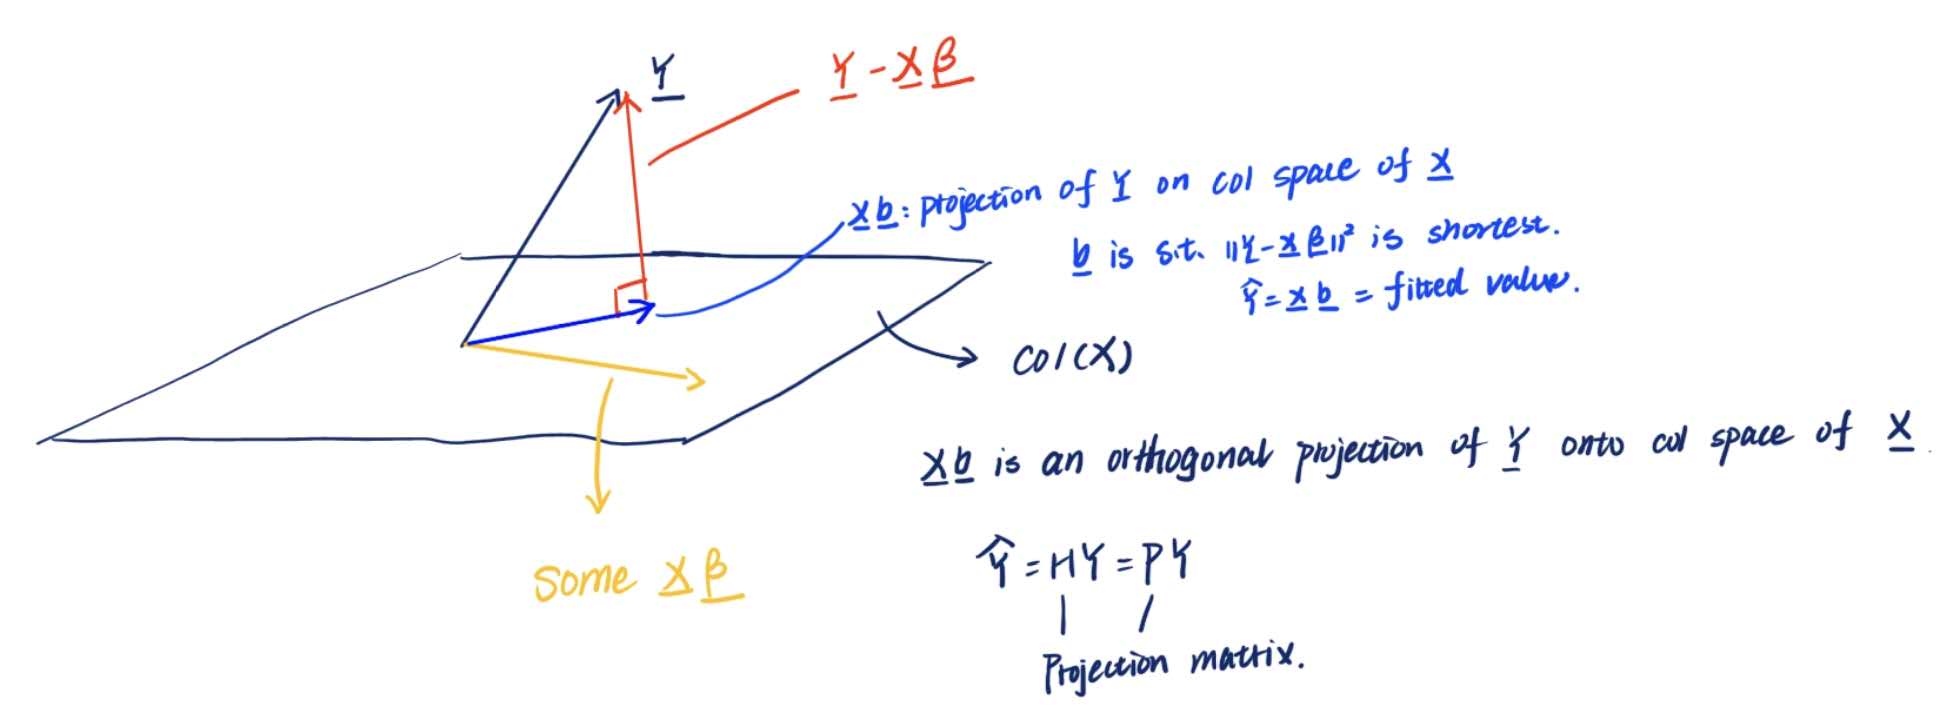 Y
Y - Xβ
Xb : projection of Y on col space of X
b is s.t. ||Y - Xβ||² is shortest.
Ŷ = Xb = fitted value.
Col(X)
Xb is an orthogonal projection of Y onto col space of X.
Some Xβ
Ŷ = HY = PY
Projection matrix.